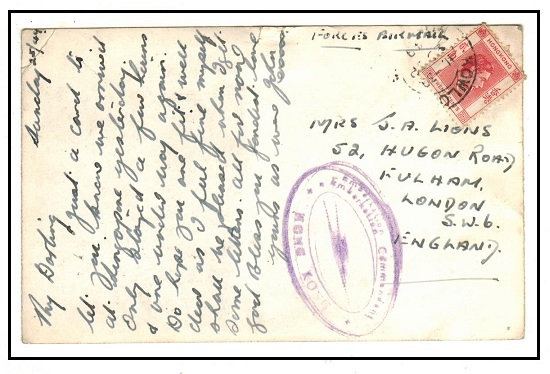 Sunday 25/
My Darling
Just a card to
let you know we arrived
at Singapore yesterday.
Only stayed a few hours
& are under way again.
Do hope you are fit & well
dear as I feel fine myself
shall be pleased when I get
some letters. All for now
God Bless you fondest love
Yours as ever
FORCES AIRMAIL
MRS S. A. LIONS
52, HUGON ROAD
FULHAM,
LONDON
S.W.6.
ENGLAND.
HONGKONG
Embarkation Commandant
HONG KONG